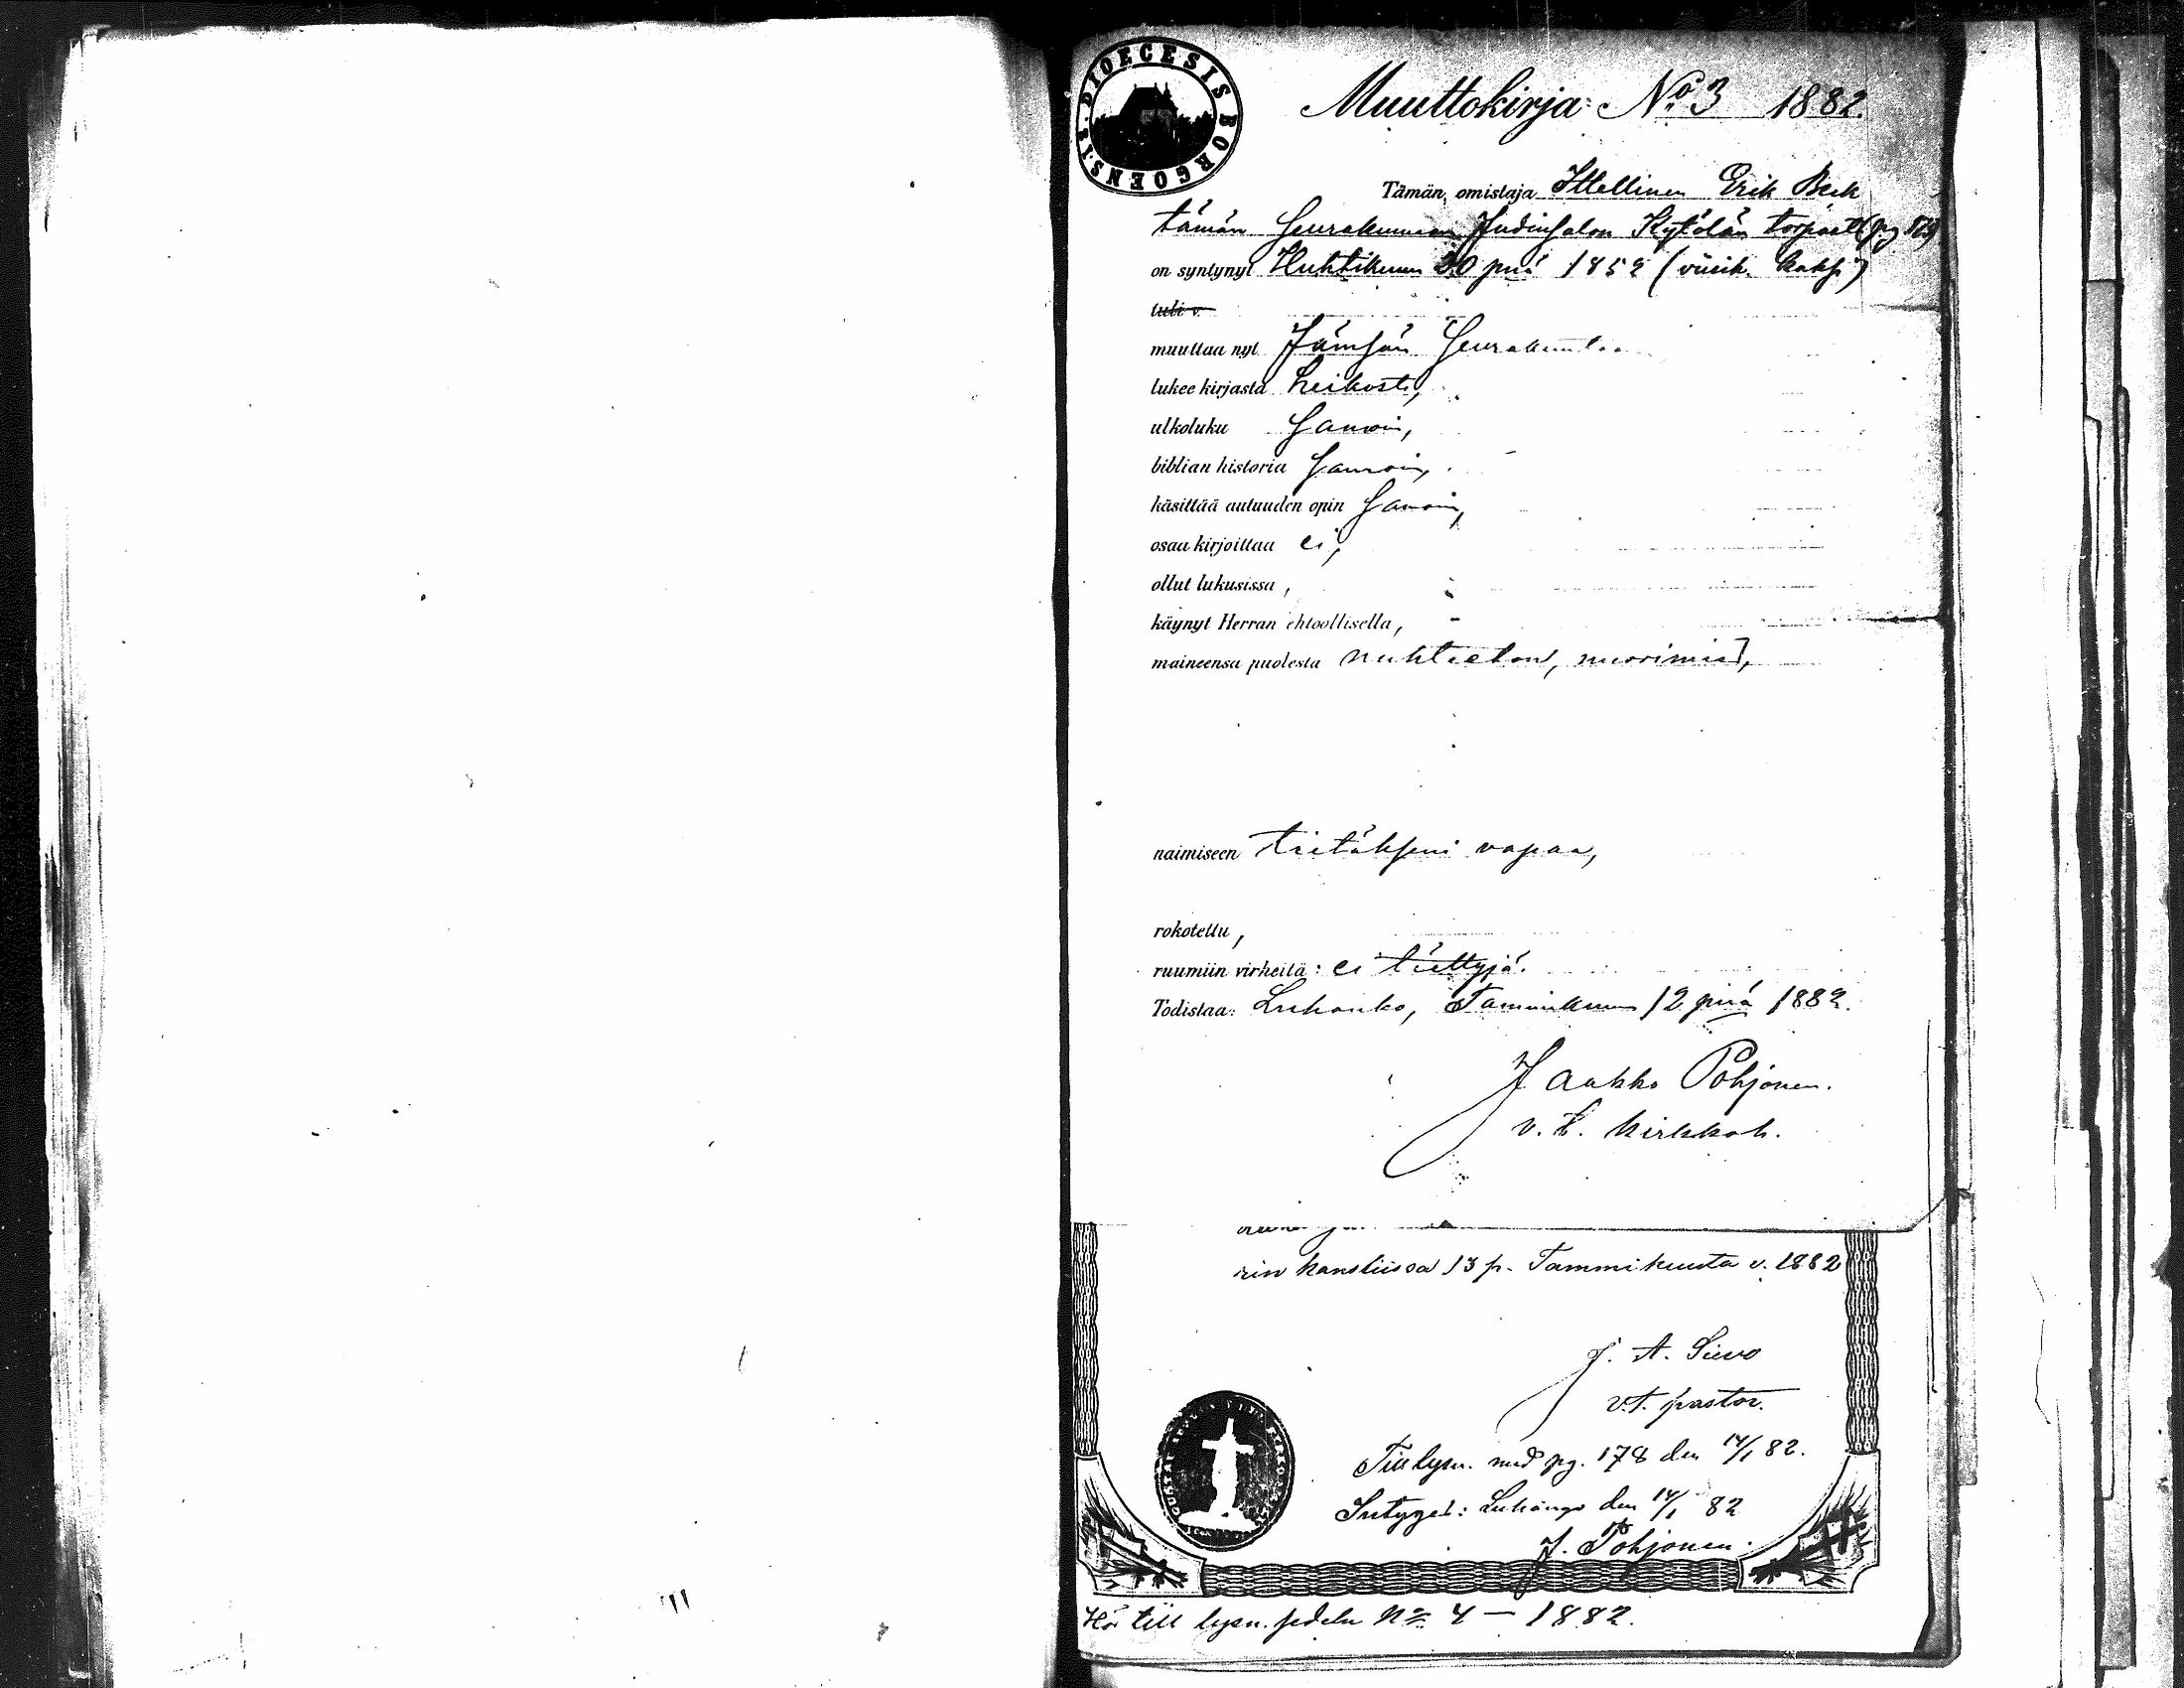 DIOECESIS BORGOENSIS
Muuttokirja No 3 1882.
Tämän omistaja Itellinen Erik Beck
tämän Seurakunnan Judinsalon Kytölän torpasta (pg
on syntynyt Huhtikuun 20 pnä 1852 (viisik. kaksi)
tuli v.
muuttaa nyt Jämsän Seurakuntaan
lukee kirjasta heikosti,
ulkoluku samoin,
biblian historia samoin,
käsittää autuuden opin samoin,
osaa kirjoittaa ei,
ollut lukusissa,
käynyt Herran ehtoollisella,
maineensa puolesta nuhteeton, nuorimies,
naimiseen tietäkseni vapaa,
rokotettu,
ruumiin virheitä: ei tiettyjä.
Todistaa: Luhanko, Tammikuun 12 pnä 1882.
Jaakko Pohjonen.
v. t. kirkkoh.
rin kansliissa 13 p. Tammikuuta v. 1882
J. A. Sievo
v.t. pastor.
med pg. 178 den 14/1 82.
Intygas: Luhango den 14/1 82
J. Pohjonen.
Hör till lysn. sedeln No 4 — 1882.